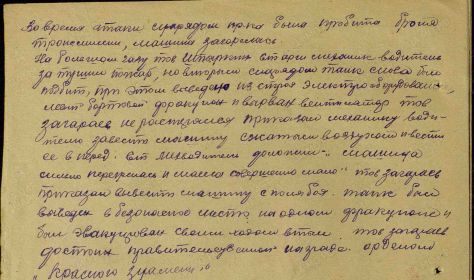 Во время атаки снарядом пр-ка была пробита броня
трансмиссии, машина загорелась
На большом ходу тов старш механик-водитель
за тушил пожар, но вторым снарядом танк снова был
подбит, при этом выведено из строя электрооборудован
левый бортовой фракцион и вентилятор тов
загараев не растерялся приказал механику води-
телю завести машину сжатым воздухом и вести
ее в перед. водитель доложил " машина
сильно перегрелась и масла совершенно мало" тов загараев
приказал вывести машину с поля боя. танк был
выведен в безопасное место на одном фракционе и
был эвакуирован своим ходом в тыл тов загараев
достоин правительственной награда орденом
"Красного знамени"